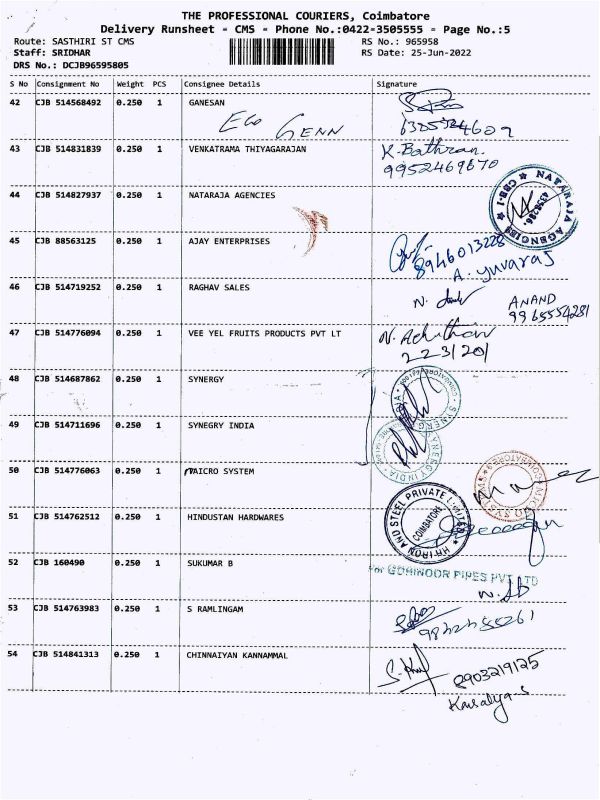 THE PROFESSIONAL COURIERS, Coimbatore
Delivery Runsheet - CMS - Phone No.:0422-3505555 - Page No.:5
Route: SASTHIRI ST CMS
RS No.: 965958
Staff: SRIDHAR
RS Date: 25-Jun-2022
DRS No.: DCJB96595805
S No Consignment No Weight PCS Consignee Details Signature
42 CJB 514568492 0.250 1 GANESAN
EGO GENN
43 CJB 514831839 0.250 1 VENKATRAMA THIYAGARAJAN K. Bathran.
9952469670
44 CJB 514827937 0.250 1 NATARAJA AGENCIES
NATARAJA AGENCIES ★ CBE-1 ★
45 CJB 88563125 0.250 1 AJAY ENTERPRISES 8946013228
A. yuvaraj
46 CJB 514719252 0.250 1 RAGHAV SALES ANAND
9965554281
47 CJB 514776094 0.250 1 VEE YEL FRUITS PRODUCTS PVT LT
223201
48 CJB 514687862 0.250 1 SYNERGY
49 CJB 514711696 0.250 1 SYNEGRY INDIA
50 CJB 514776063 0.250 1 MAICRO SYSTEM
51 CJB 514762512 0.250 1 HINDUSTAN HARDWARES
IRON AND STEEL PRIVATE LIMITED
COIMBATORE
52 CJB 160490 0.250 1 SUKUMAR B
For GOHINOOR PIPES PVT LTD
53 CJB 514763983 0.250 1 S RAMLINGAM
54 CJB 514841313 0.250 1 CHINNAIYAN KANNAMMAL
8903219125
Kausalya-s